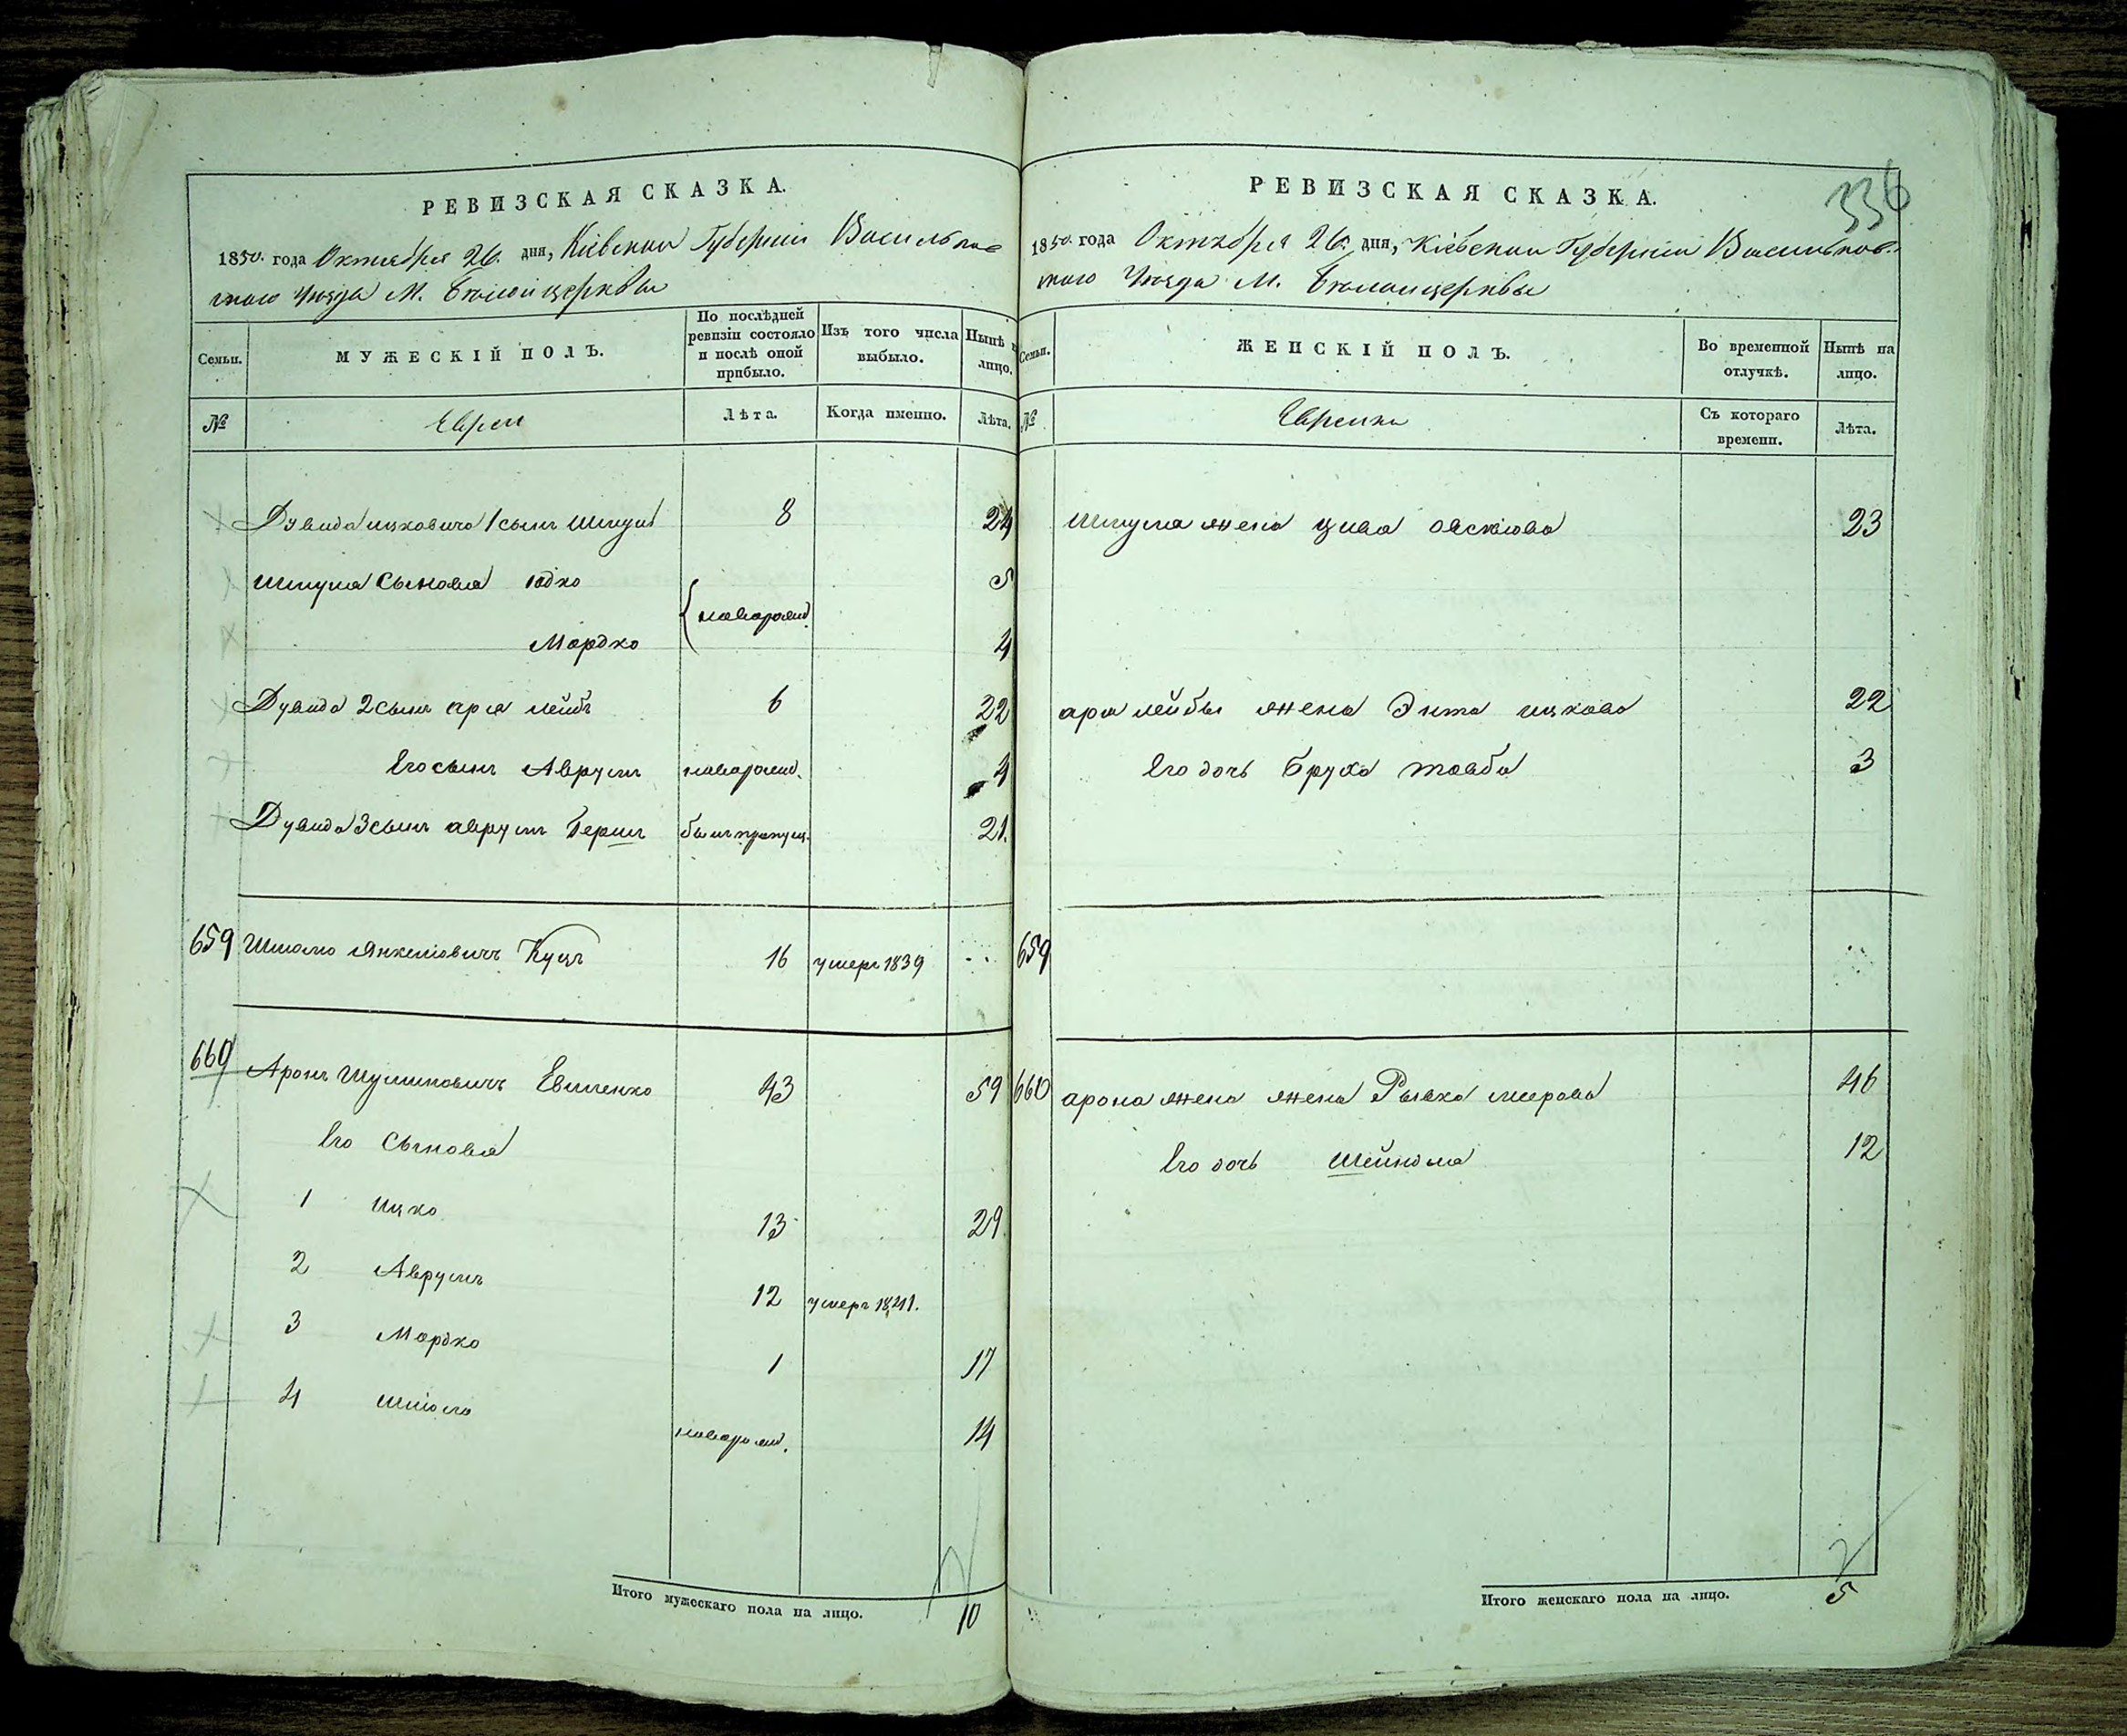 РЕВИЗСКАЯ СКАЗКА.
1850. года Октября 26. дня, Кіевской Губерніи Васильков-
скаго Уѣзда М. Бѣлойцерквы
Семьи.
МУЖЕСКІЙ ПОЛЪ.
По послѣдней ревизіи состояло и послѣ оной прибыло.
Изъ того числа выбыло.
Нынѣ на лицо.
№
Евреи
Лѣта.
Когда именно.
Лѣта.
Дувида ицковича 1 сынъ Шмуль 8 24
Шмуля Сыновья Юдко 5
новорожд.
Мордко 4
Дувида 2 сынъ аря лейбъ 6 22
Его сынъ Аврумъ новорожд. 4
Дувида 3 сынъ аврумъ Берш былъ пропущ. 21.
659 Шлиомо Янкелiовичъ Куцъ 16 умеръ 1839 ...
660 Аронъ Шулимовичъ Евиленко 43 59
Его Сыновья
1 Ицко 13 29
2 Аврумъ 12 умеръ 1841.
3 Мордко 1 17
4 Шліома новорожд. 14
Итого мужескаго пола на лицо. 10
РЕВИЗСКАЯ СКАЗКА.
336
1850. года Октября 26. дня, Кіевской Губерніи Васильков-
скаго Уѣзда М. Бѣлойцерквы
Семьи.
ЖЕНСКІЙ ПОЛЪ.
Во временной отлучкѣ.
Нынѣ на лицо.
№
Еврейки
Съ котораго времени.
Лѣта.
Шмуля жена Цива 23
аря лейбы жена Энта ицкова 22
Его дочь Бруха товба 3
659
660 арона жена жена Рывка меерова 46
Его дочь Шейндля 12
Итого женскаго пола на лицо. 5